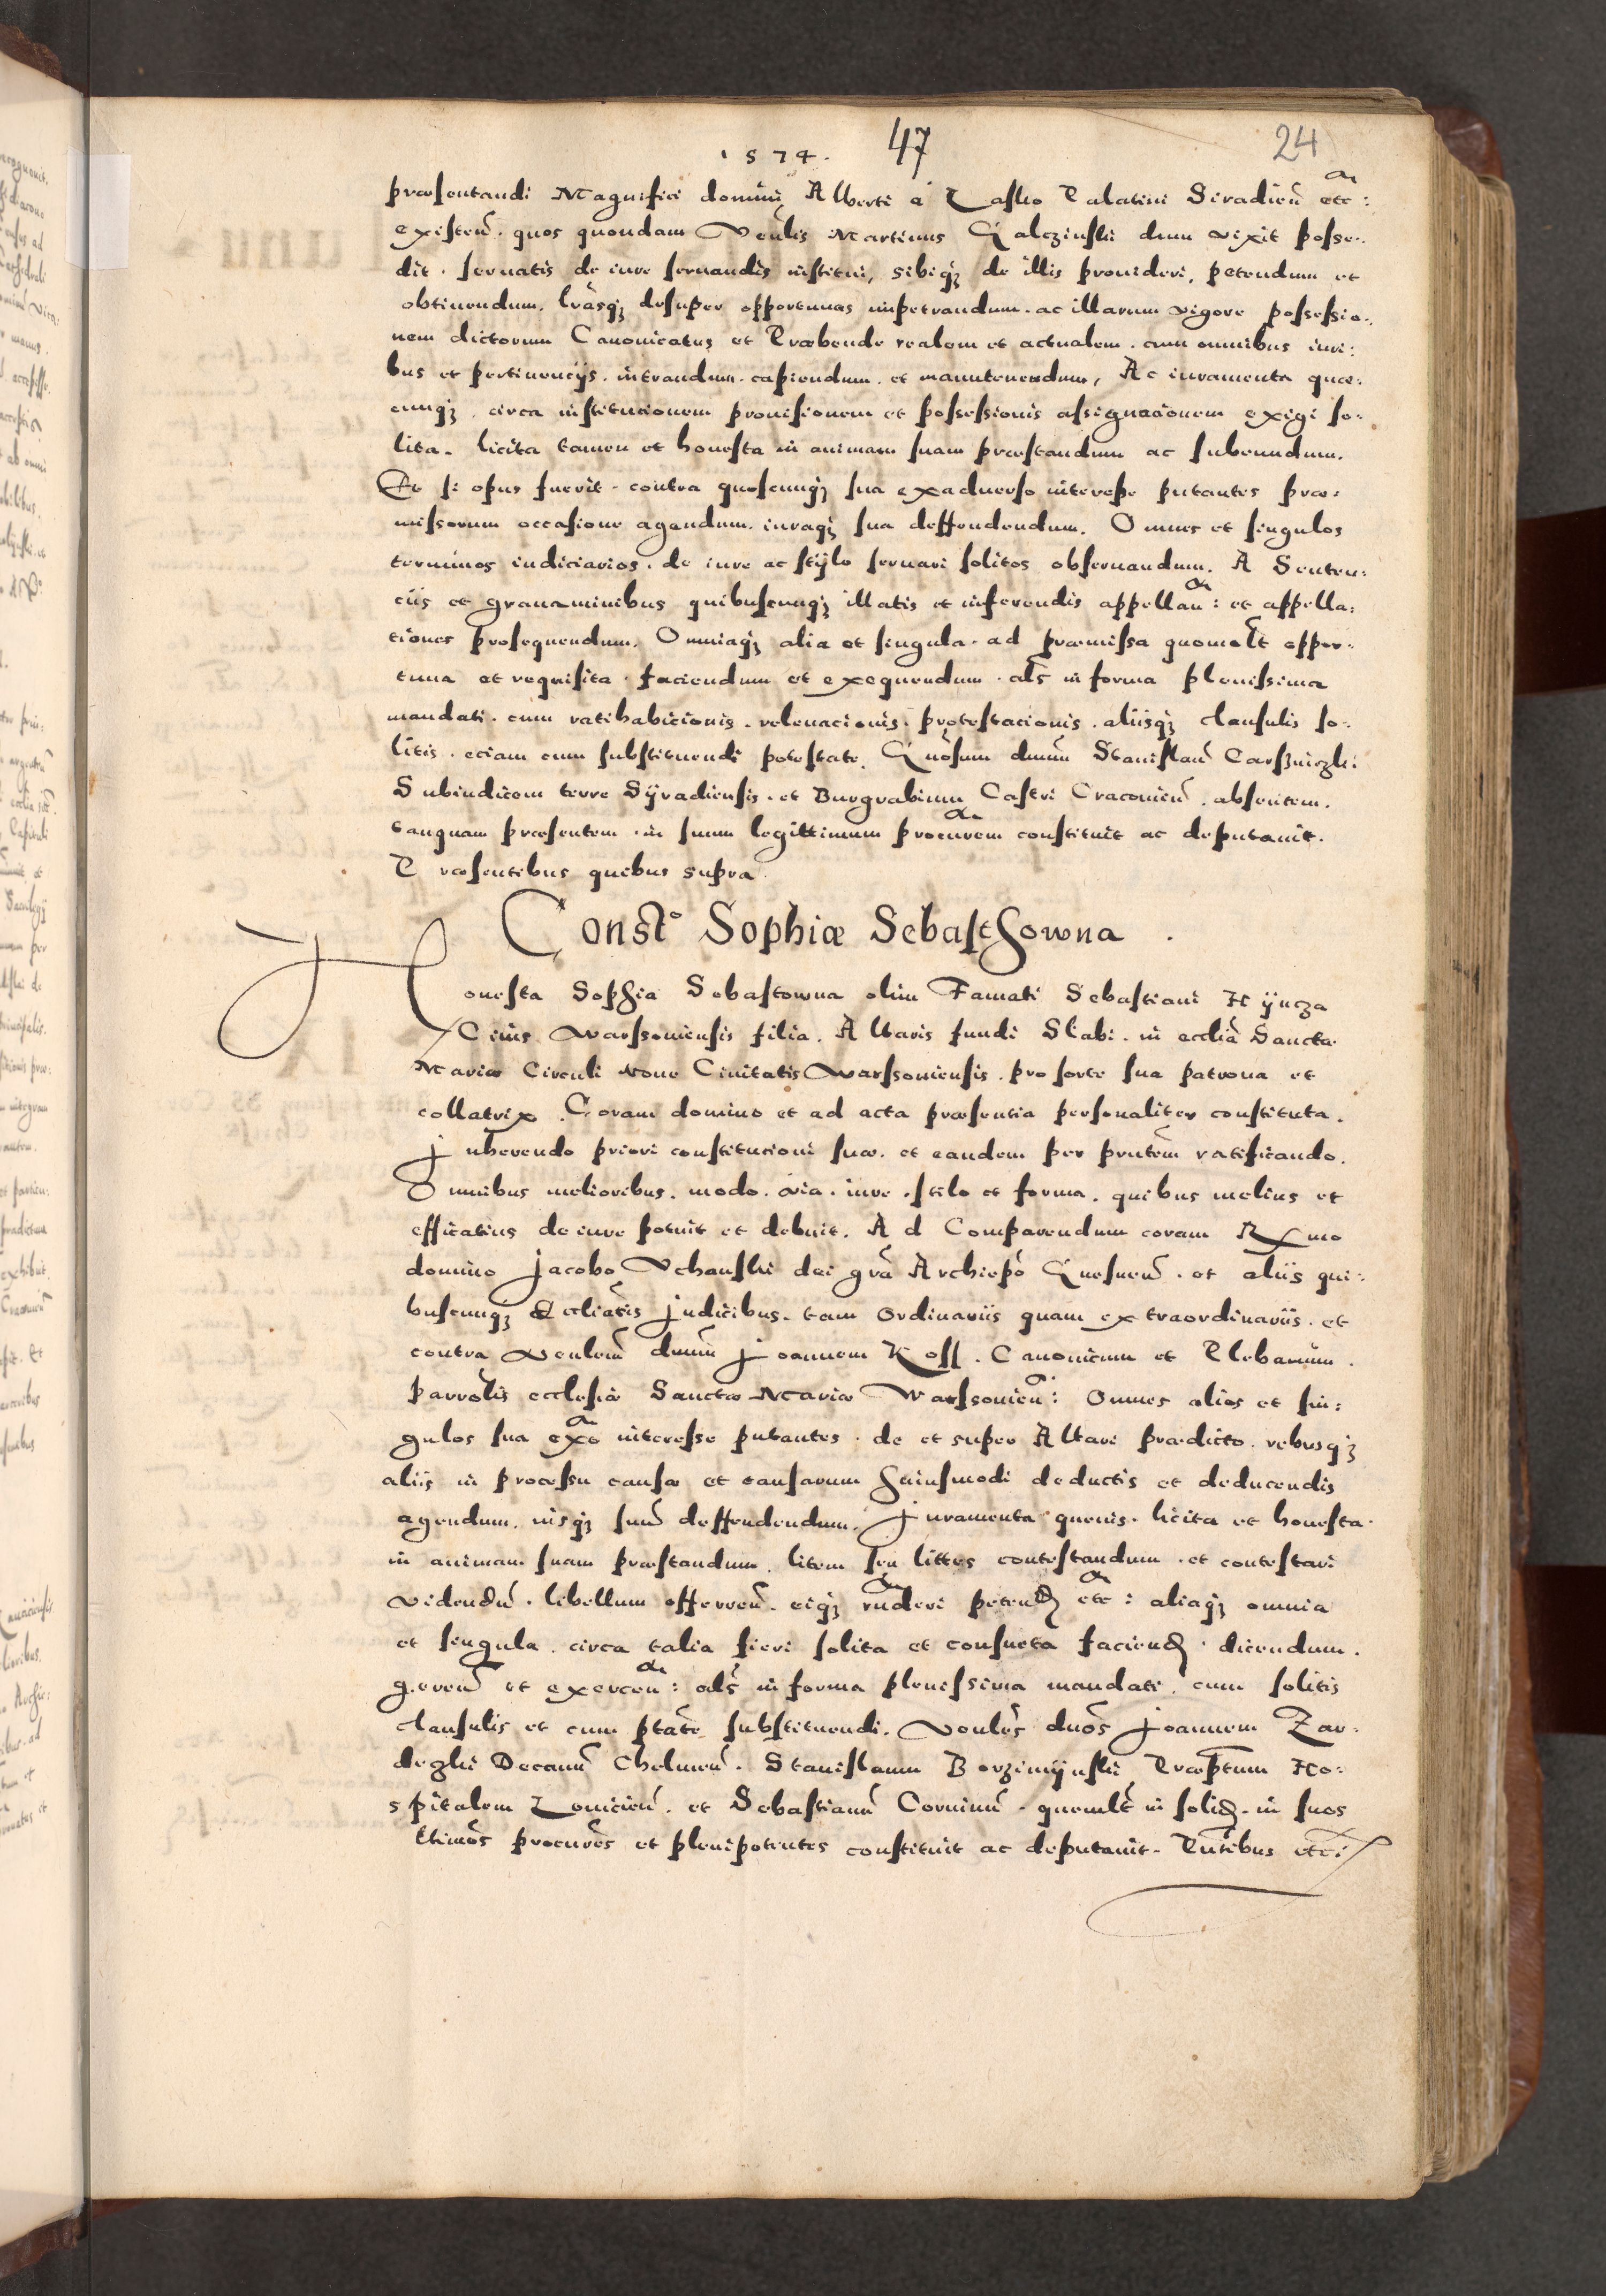 1574. 47 24
præsentandi Magnifici domini Alberti a Lasko Palatini Siradien̄ etc:
existen̄. quos quondam Venlis Martinus Galczinski dum vixit posse-
dit. servatis de iure servandis institui, sibiqȝ de illis provideri, petendum et
obtinendum. lrāsqȝ desuper opportunas impetrandum. ac illarum vigore possessio-
nem dictorum Canonicatus et Præbende realem et actualem. cum omnibus iuri:
bus et pertinencÿs. intrandum. capiendum. et manutenendum, Ac iuramenta quæ:
cunqȝ. circa institucionem provisionem et possessionis assignacionem exigi so:
lita. licita tamen et honesta in animam suam præstandum ac subeundum.
Et si opus fuerit. contra quoscunqȝ sua exadverso interesse putantes præ:
missorum occasione agendum. iuraqȝ sua deffendendum. Omnes et singulos
terminos iudiciarios. de iure ac stÿlo servari solitos observandum. A Senten:
ciis et gravaminibus quibuscunqȝ illatis et inferendis appellan: et appella:
tiones prosequendum. Omniaqȝ alia et singula. ad præmissa quomolt oppor:
tuna et requisita. faciendum et exequendum. als in forma plenissima
mandati. cum ratihabicionis. relevacionis. protestacionis. aliisqȝ clausulis so:
litis. eciam cum substituendi potestate. Gnosum dnum Stanislaū
Subiudicem terre Sÿradiensis. et Burgrabium Castri Cracovien̄. absentem.
tanquam præsentem. in suum legittimum procurem constituit ac deputavit.
Præsentibus quibus supra.
Constō Sophiæ Sebasthowna.
Honesta Sophia Sebastowna olim Famati Sebastiani Hÿncza
Civis Warssoviensis filia. Altaris fundi Slabi. in ecclīa Sancta
Mariæ Circuli Nove Civitatis Warssoviensis. pro sorte sua patrona et
collatrix. Coram domino et ad acta præsentia personaliter constituta.
Inherendo priori constitucioni suæ. et eandem per prntem ratificando.
Omnibus melioribus. modo. via. iure. stilo et forma. quibus melius et
efficatius de iure potuit et debuit. Ad Comparendum coram Rxmo
domino Jacobo Vchanski dei grā Archiepō Gnesnen̄. et aliis qui:
buscunqȝ Eccliātis Judicibus. tam Ordinariis quam extraordinariis. et
contra Venlem dnum Joannem Koss. Canonicum et Plebanum.
parrolis ecclesiæ Sanctæ Mariæ Warssovien̄: Omnes alios et sin:
gulos sua exo interesse putantes. de et super Altari prædicto. rebusqȝ
aliis in processu causæ et causarum huiusmodi deductis et deducendis
agendum. iusqȝ suū deffendendum. Juramenta quevis. licita et honesta
in animam suam præstandum. litem seu littes contestandum. et contestari
videndū. libellum offerren̄. eiqȝ rnderi peten̄d etc: aliaqȝ omnia
et singula. circa talia fieri solita et consueta faciend. dicendum.
geren̄ et exercen: als in forma plenissima mandati. cum solitis
clausulis et cum ptāte substituendi. Venles dnos Joannem Zar:
deczki Decanū Chelmen̄. Stanislaum Borzimÿnski Præptum Ho:
spitalem Lovicien̄. et Sebastianū Corvinū. quemlt in solid. in suos
ltimos procures et plenipotentes constituit ac deputavit. Pntibus etc: